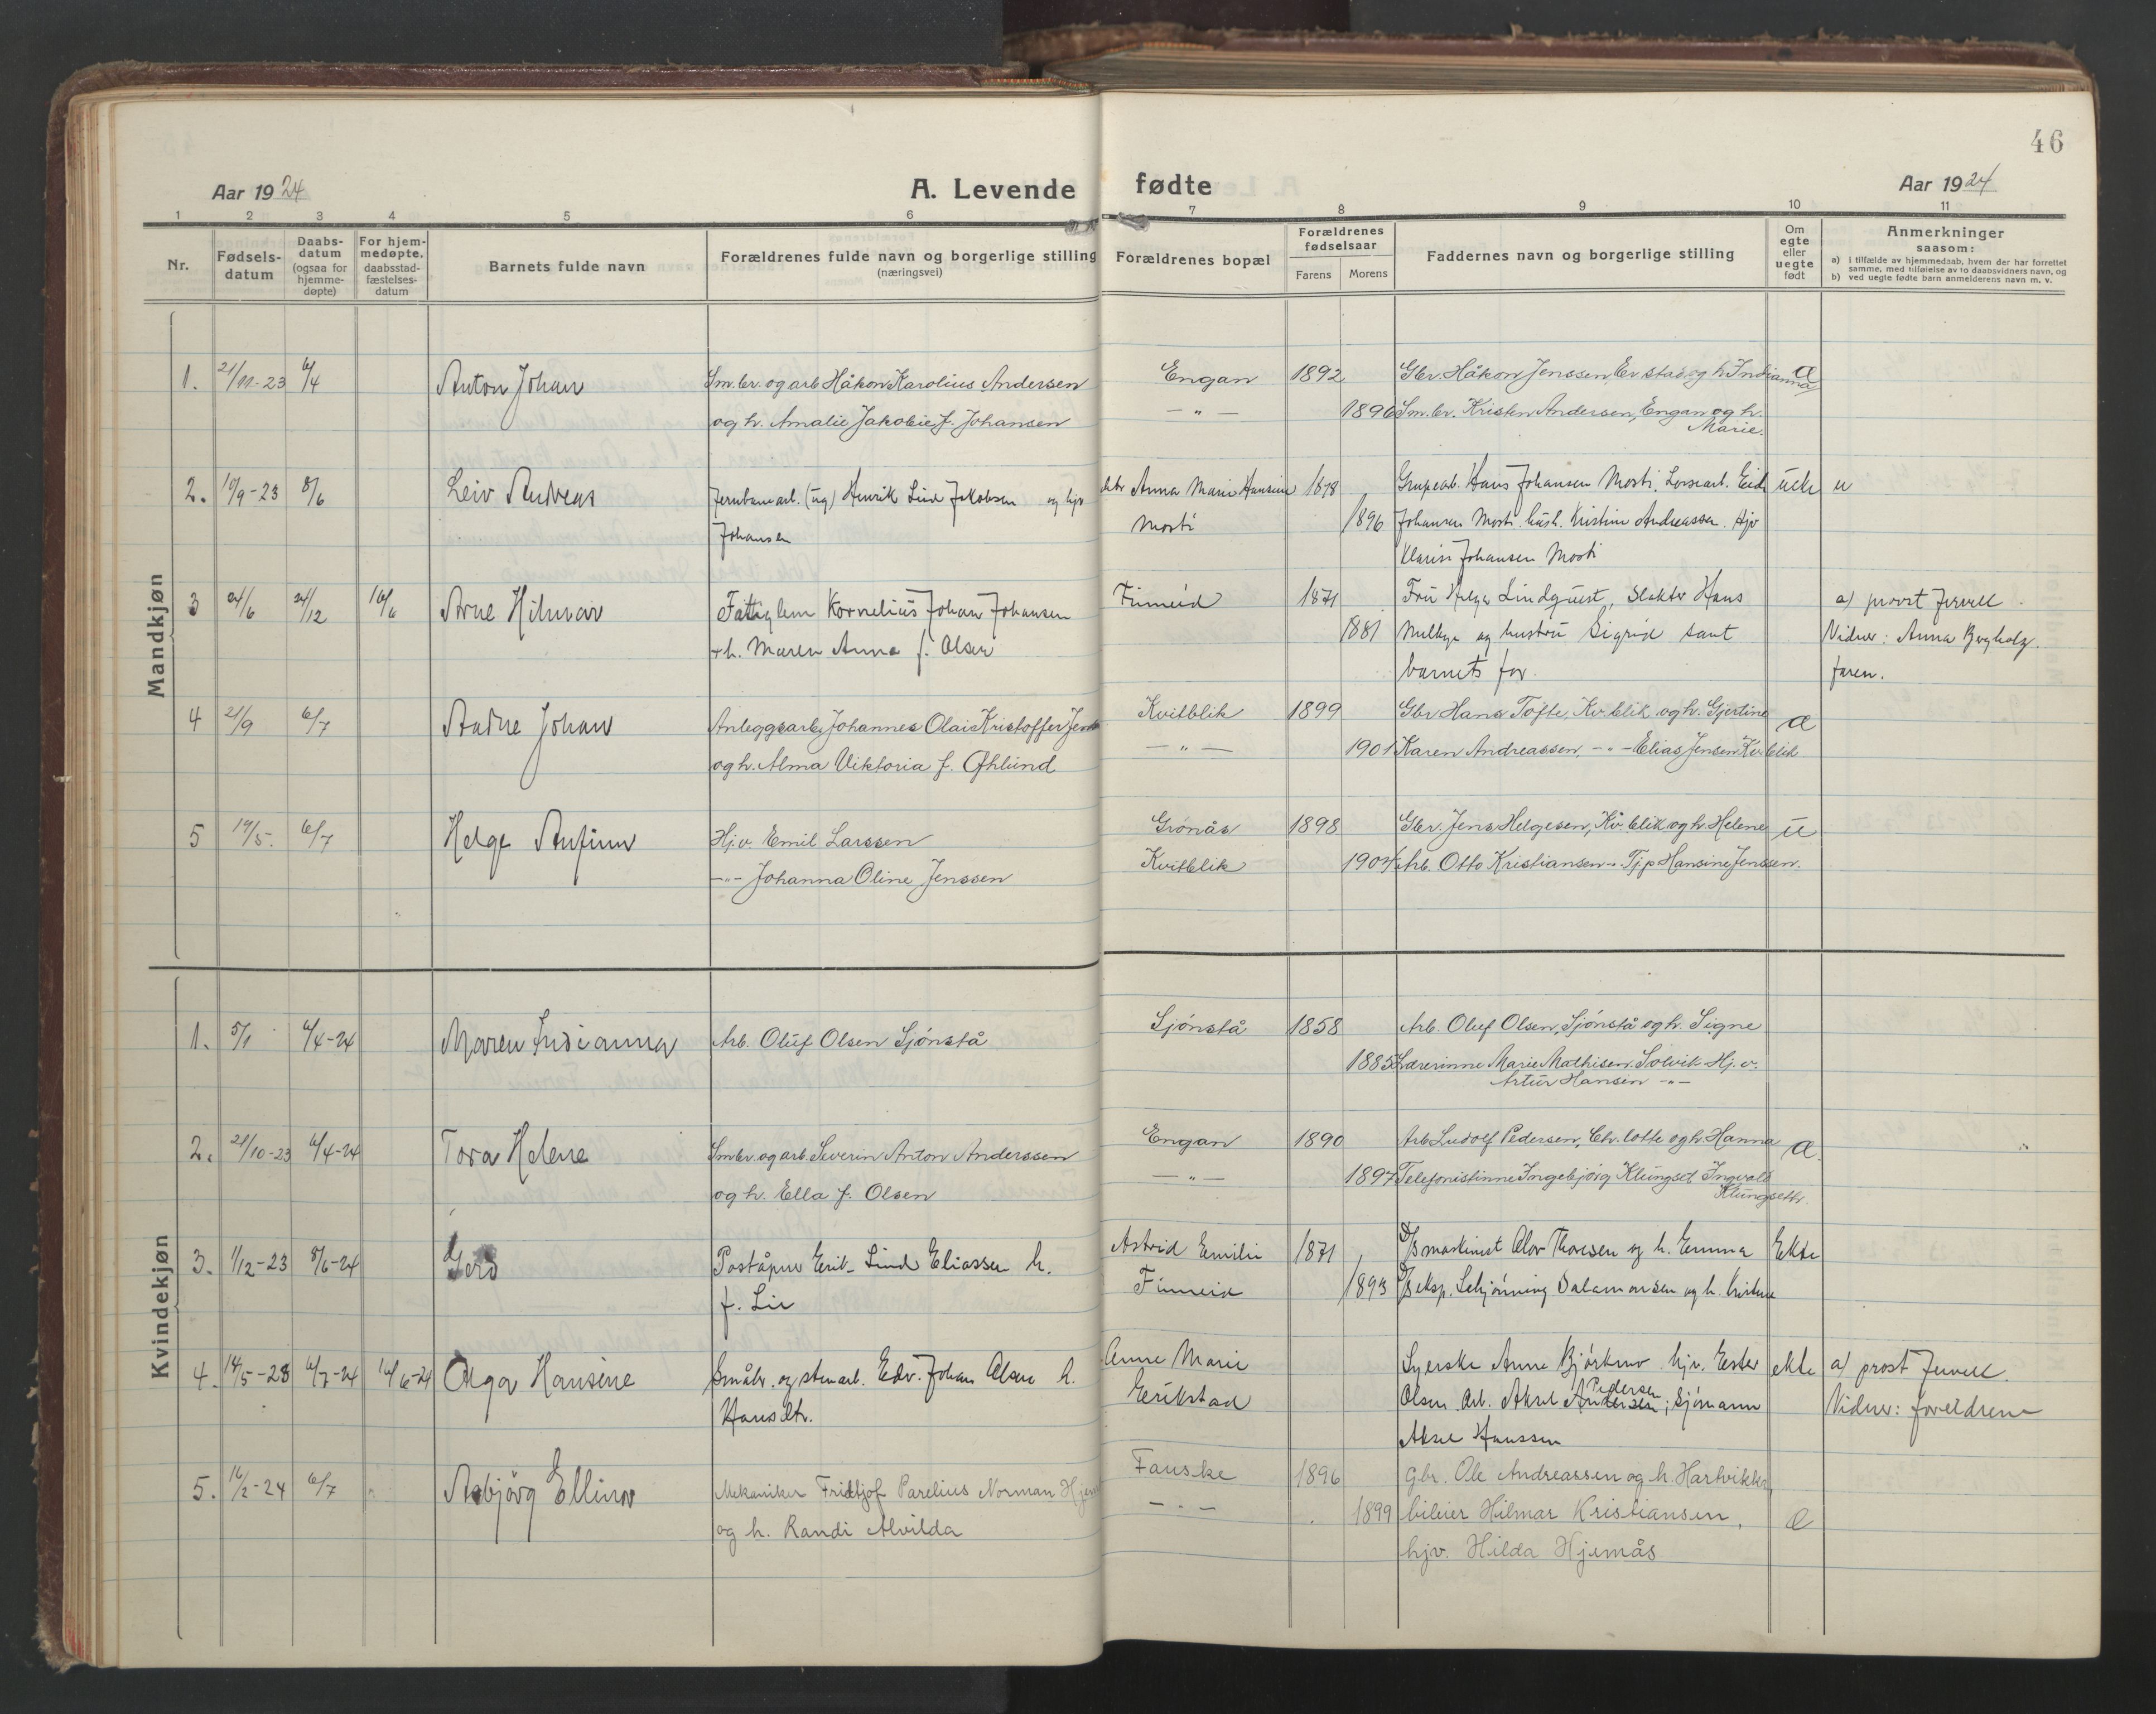 46
Aar 1924 A. Levende fødte Aar 1924
1 2 3 4 5 6 7 8 9 10 11
Nr. Fødselsdatum Daabsdatum (ogsaa for hjemmedøpte) For hjemmedøpte, daabsstadfæstelsesdatum Barnets fulde navn Forældrenes fulde navn og borgerlige stilling (næringsvei) Forældrenes bopæl Forældrenes fødselsaar Farens Morens Faddernes navn og borgerlige stilling Om egte eller uegte født Anmerkninger saasom: a) i tilfælde av hjemmedaab, hvem der har forrettet samme, med tilføielse av to daabsvidners navn, og b) ved uegte fødte barn anmelderens navn m. v.
Mandkjøn
1. 21/11-23 6/4 Anton Johan Sm.br. og arb. Håkon Karolius Andersen Engan 1892 Gbr. Håkon Jenssen, og h. Indianna
og h. Amalie Jakobie f. Johansen — " — 1896 Sm.br. Kristen Andersen, Engan og h.
Marie.
2. 10/9-23 8/6 Leiv Andreas Jernbanearb. (ug) Henrik Lind Jakobsen og hjv Anna Marie Hansine 1878 Hans Johansen Mosti. Eid uekte
Johansen Mosti 1896 Johansen Mosti. Kristine Andreassen. Hjv
Johansen Mosti
3 24/6 24/12 16/6 Arne Hilmar Fattiglem Kornelius Johan Johansen Finneid 1871 Fru Helga Lindquist, Slakter Hans a) prost Jervell.
+h. Maren Anna f. Olsen 1881 og hustru Sigrid samt Vidner: Anna Bergholz.
barnets far. faren.
4 21/9 6/7 Audne Johan Anleggsarb. Johannes Olai Kristoffer Kvitblik 1899 Gbr Hans Tofte, Kv.blik og h. Gjertine
og h. Alma Viktoria f. Øhlund — " — 1901 Karen Andreassen, - " - Elias Jensen Kv.blik
5 19/5. 6/7 Helge Anfinn Hj.v. Emil Larssen Grønås 1898 Gbr. Jens Helgesen, Kv.blik og h. Helene u
—"— Johanna Oline Jenssen Kvitblik 1904 Arb. Otto Kristiansen -"- Tjp Hansine Jenssen.
Kvindekjøn
1. 5/1 6/4-24 Maren Indianna Arb. Oluf Olsen Sjønstå Sjønstå 1858 Arb. Oluf Olsen, Sjønstå og h. Signe
1885 Lærerinne Marie Mathisen. Solvik Hj.v.
Artur Hansen -"-
2. 21/10-23 6/4-24 Tora Helene Smbr. og arb. Severin Anton Anderssen Engan 1890 Arb. Ludolf Pedersen, Ch.lotte og h. Hanna
og h. Ella f. Olsen — " — 1897 Telefonistinne Ingebjørg Klungset, Ingvald
Klungseth.
3. 1/12-23 8/6-24 Gerd Poståpner Erik Lind Eliassen h. Astrid Emilie 1871 D/S maskinist Olov Thoresen og h. Emma Ekte
f. Lie Finneid 1893 D/S eksp. Schjønning Salamonsen og h.
4. 14/5-23 6/7-24 16/6-24 Olga Hansine Småbr. og stenarb. Edv. Johan Olsen h. Anne Marie Syerske Anne hjv. Ester ekte a) prost Jervell.
Hansdtr. Erikstad Olsen. Arb. Aksel Andersen Pedersen; Sjømann Vidner: foreldrene
Aksel Hanssen
5. 16/2-24 6/7 Asbjörg Ellinor Mekaniker Fridtjof Parelius Norman Fauske 1896 Gbr. Ole Andreassen og h. Hartvikka,
og h. Randi Alvilda — " — 1899 bileier Hilmar Kristiansen, e
hjv. Hilda Hjemås